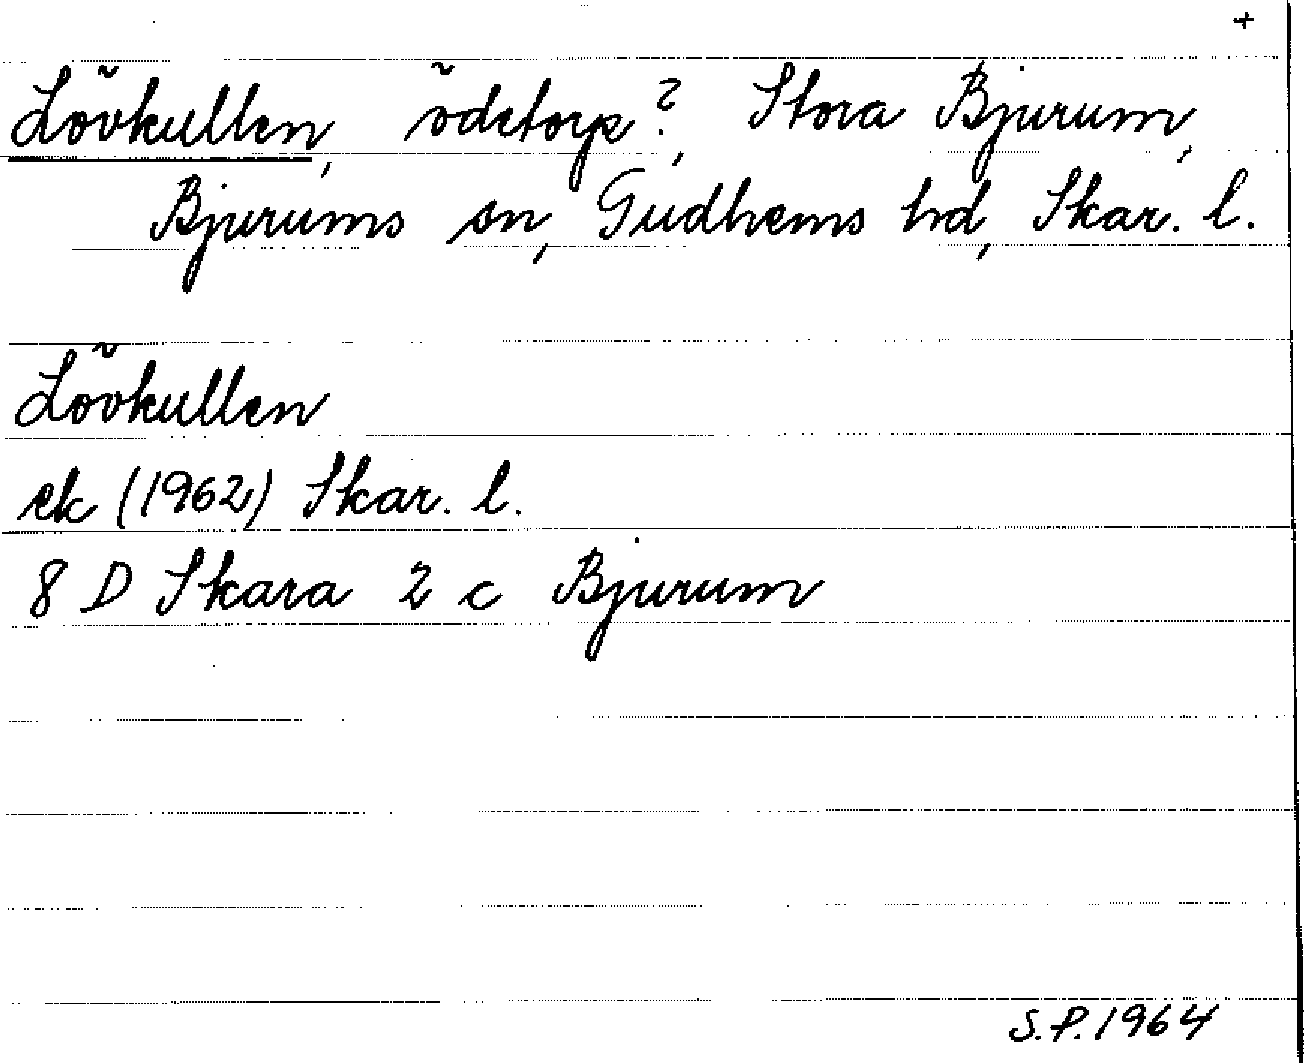 +
Lövkullen, ödetorp?, Stora Bjurum,
Bjurums sn, Gudhems hd, Skar. l.
Lövkullen
ek (1962) Skar. l.
8 D Skara 2 c Bjurum
S.P. 1964